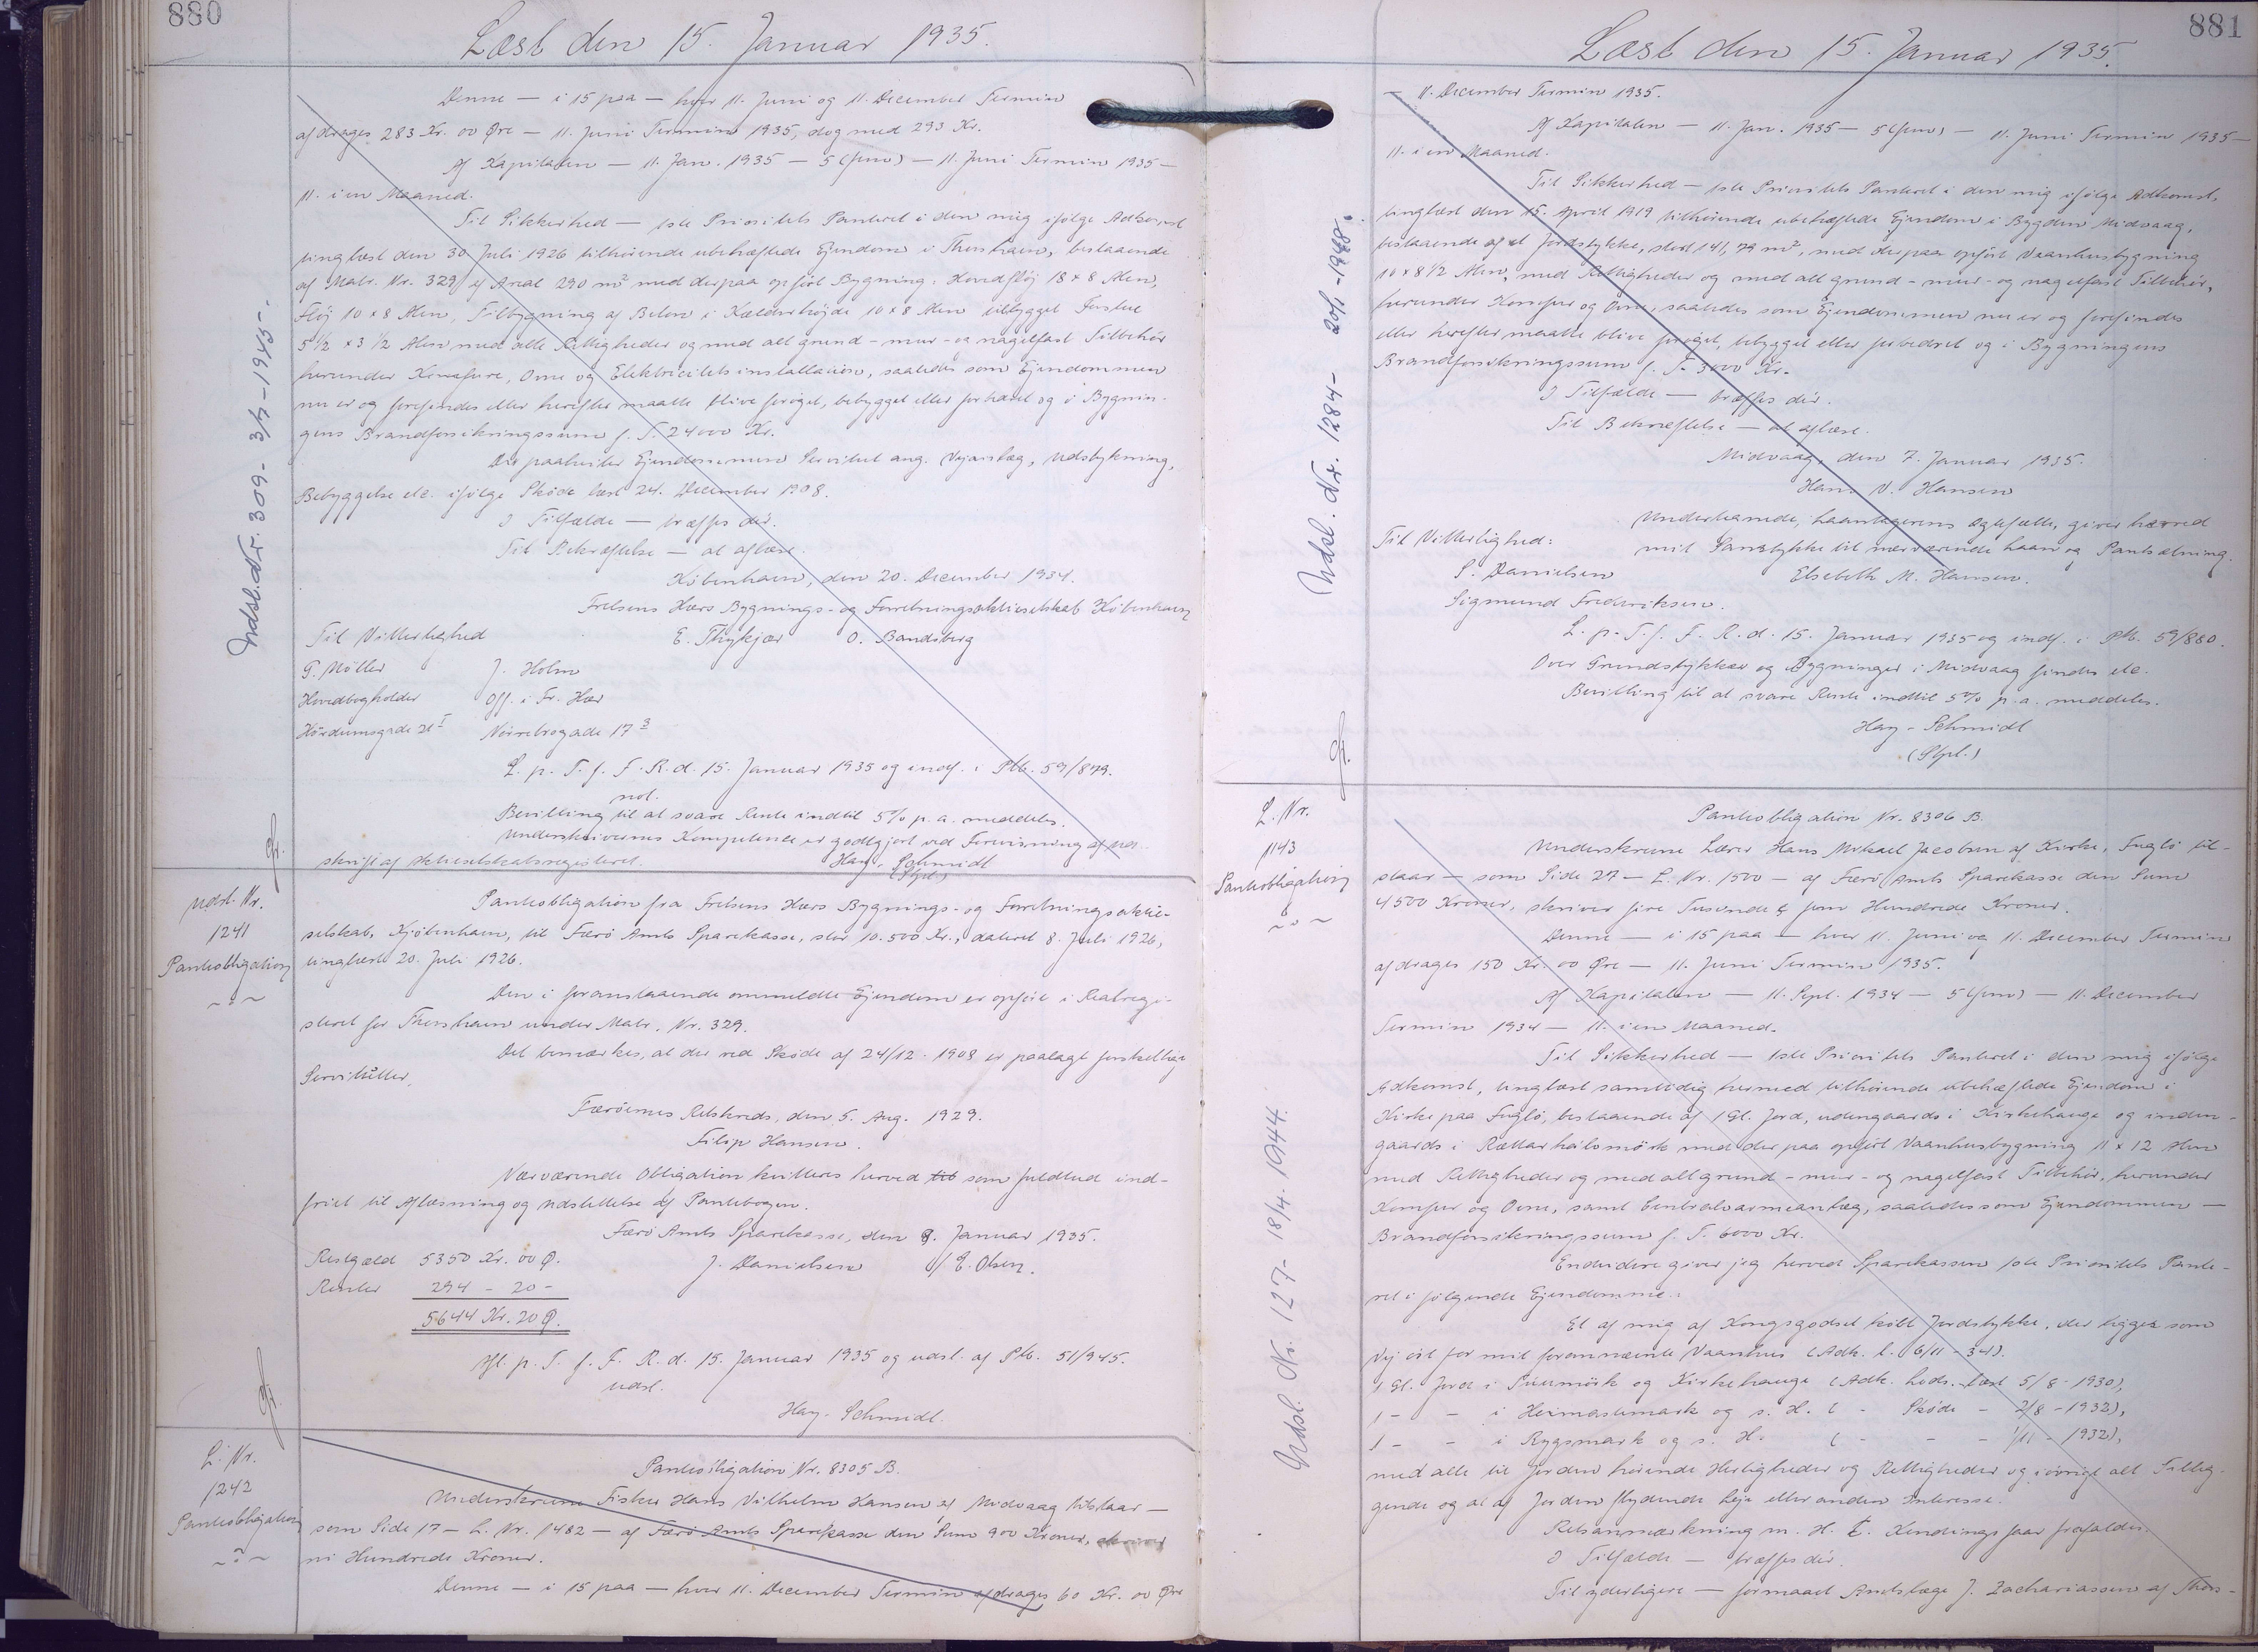 880
Læst den 15. Januar 1935.
Denne — i 15 paa — hver 11. Juni og 11. December Termin
afdrages 283 Kr. 00 Øre — 11. Juni Termin 1935, dog med 293 Kr.
Af Kapitalen — 11. Jan. 1935 — 5 (fem) — 11. Juni Termin 1935 —
11. i en Maaned.
Til Sikkerhed — 1ste Prioritets Panteret i den mig ifølge Adkomst
tinglæst den 30 Juli 1926 tilhørende ubehæftede Ejendom i Thorshavn, bestaaende
af Matr. Nr. 329 af Areal 290 m² med derpaa opført Bygning: Hovedfløj 18 x 8 Alen,
Fløj 10 x 8 Alen, Tilbygning af Beton i Kælderhøjde 10 x 8 Alen tilbygget
5 1/2 x 3 1/2 Alen med alle Rettigheder og med alt grund - mur - og nagelfast Tilbehør
herunder Komfure, Ovne og Elektricitetsinstallation, saaledes som Ejendommen
nu er og forefindes eller herefter maatte blive forøget, bebygget eller forbedret og i Bygnin-
gens Brandforsikringssum f. T. 24000 Kr.
Der paahviler Ejendommen Servitut ang. Vejanlæg, Udstykning,
Bebyggelse etc. ifølge Skøde læst 24. December 1908.
I Tilfælde — træffes dér.
Til Bekræftelse — at aflæse.
København, den 20. December 1934.
Frelsens Hærs Bygnings- og Forretningsaktieselskab København
Til Vitterlighed E. Thykjær O. Bandsberg
G. Møller J. Holm
Hovedbogholder Off. i Fr. Hær
Hørdumsgade 21 I Nørrebrogade 17 3
L. p. T. f. F. R. d. 15. Januar 1935 og indf. i Ptb. 59/879.
not.
Bevilling til at svare Rente indtil 5% p. a. meddeles.
Underskrivernes Kompetence er godtgjort ved Forevisning af
skrift af Aktieselskabsregisteret. Hay-Schmidt
(Stpl.)
Udsl. Nr. 309 - 3/7 - 1945 -.
Udsl. Nr.
1241
Panteobligation
Panteobligation fra Frelsens Hærs Bygnings- og Forretningsaktie-
selskab, Kjøbenhavn, til Færø Amts Sparekasse, stor 10.500 Kr., dateret 8. Juli 1926,
tinglæst 20. Juli 1926.
Den i foranstaaende ommeldte Ejendom er opført i Realregi-
steret for Thorshavn under Matr. Nr. 329.
Det bemærkes, at der ved Skøde af 24/12 - 1908 er paalagt forskellige
Servitutter.
Færøernes Retskreds, den 5. Aug. 1929.
Filip Hansen.
Nærværende Obligation kvitteres herved til som fuldtud ind-
friet til Aflæsning og Udslettelse af Pantebogen.
Færø Amts Sparekasse, den 9. Januar 1935.
Restgæld 5350 Kr. 00 Ø. J. Danielsen / E. Olsen.
Renter 294 - 20 -
5644 Kr. 20 Ø.
Afl. p. T. f. F. R. d. 15. Januar 1935 og udsl. af Ptb. 51/945.
udsl.
Hay-Schmidt.
L. Nr.
1242
Panteobligation
Panteobligation Nr. 8305 B.
Underskrevne Fisker Hans Vilhelm Hansen af Midvaag tilstaar —
som Side 17 — L. Nr. 1482 — af Færø Amts Sparekasse den Sum 900 Kroner, skriver
ni Hundrede Kroner.
Denne — i 15 paa — hver 11. December Termin afdrages 60 Kr. 00 Øre
881
Læst den 15. Januar 1935.
— 11. December Termin 1935.
Af Kapitalen — 11. Jan. 1935 — 5 (fem) — 11. Juni Termin 1935 —
11. i en Maaned.
Til Sikkerhed — 1ste Prioritets Panteret i den mig ifølge Adkomst,
tinglæst den 15. April 1919 tilhørende ubehæftede Ejendom i Bygden Midvaag,
bestaaende af et Jordstykke, stort 141,79 m², med derpaa opført Vaanhusbygning
10 x 8 1/2 Alen, med Rettigheder og med alt grund - mur - og nagelfast Tilbehør,
herunder Komfur og Ovne, saaledes som Ejendommen nu er og forefindes
eller herefter maatte blive forøget, bebygget eller forbedret og i Bygningens
Brandforsikringssum f. T. 3000 Kr.
I Tilfælde — træffes dér.
Til Bekræftelse — at aflæse.
Midvaag, den 7. Januar 1935.
Hans V. Hansen
Undertegnede, Laantagerens Ægtefælle, giver herved
Til Vitterlighed: mit Samtykke til nærværende Laan og Pantsætning.
S. Danielsen Elsebeth M. Hansen.
Sigmund Frederiksen.
L. p. T. f. F. R. d. 15. Januar 1935 og indf. i Ptb. 59/880.
Over Grundstykker og Bygninger i Midvaag findes etc.
Bevilling til at svare Rente indtil 5% p. a. meddeles.
Hay-Schmidt
(Stpl.)
Udsl. Nr. 1284 - 20/1 - 1948.
L. Nr.
1143
Panteobligation
Panteobligation Nr. 8306 B.
Underskrevne Lærer Hans Mikael Jacobsen af Kirke, Fuglø til-
staar — som Side 27 — L. Nr. 1500 — af Færø Amts Sparekasse den Sum
4500 Kroner, skriver fire Tusinde fem Hundrede Kroner.
Denne — i 15 paa — hver 11. Juni og 11. December Termin
afdrages 150 Kr. 00 Øre — 11. Juni Termin 1935.
Af Kapitalen — 11. Sept. 1934 — 5 (fem) — 11. December
Termin 1934 — 11. i en Maaned.
Til Sikkerhed — 1ste Prioritets Panteret i den mig ifølge
Adkomst, tinglæst samtidig hermed tilhørende ubehæftede Ejendom i
Kirke paa Fuglø, bestaaende af 1 Gl. Jord, udengaards i Kirkehauge og inden-
gaards i Rættarhálsmørk med der paa opført Vaanhusbygning 11 x 12 Alen
med Rettigheder og med alt grund - mur - og nagelfast Tilbehør, herunder
Komfur og Ovne, samt Centralvarmeanlæg, saaledes som Ejendommen —
Brandforsikringssum f. T. 6000 Kr.
Endvidere giver jeg herved Sparekassen 1ste Prioritets Pante-
ret i følgende Ejendomme:
Et af mig af Kongsgodset købt Jordstykke, der ligger som
Vej øst for mit forannævnte Vaanhus (Adk. l. 6/11 - 34).
1 Gl. Jord i og Kirkehauge (Adk. læst 5/8 - 1930),
1 - - i Heimastumark og s. H. ( - Skøde - 2/8 - 1932),
1 - - i Rygsmark og s. H. ( - - - 1/11 - 1932),
med alle til Jorden hørende Herligheder og Rettigheder og iøvrigt alt Tillig-
gende og al af Jorden flydende Leje eller anden Interesse.
Retsanmærkning m. H. t. Kendingsjaar frafaldes.
I Tilfælde — træffes dér.
Til yderligere — formaaet Amtslæge J. Zachariassen af Thors-
Udsl. Nr. 127 - 18/4 - 1944.